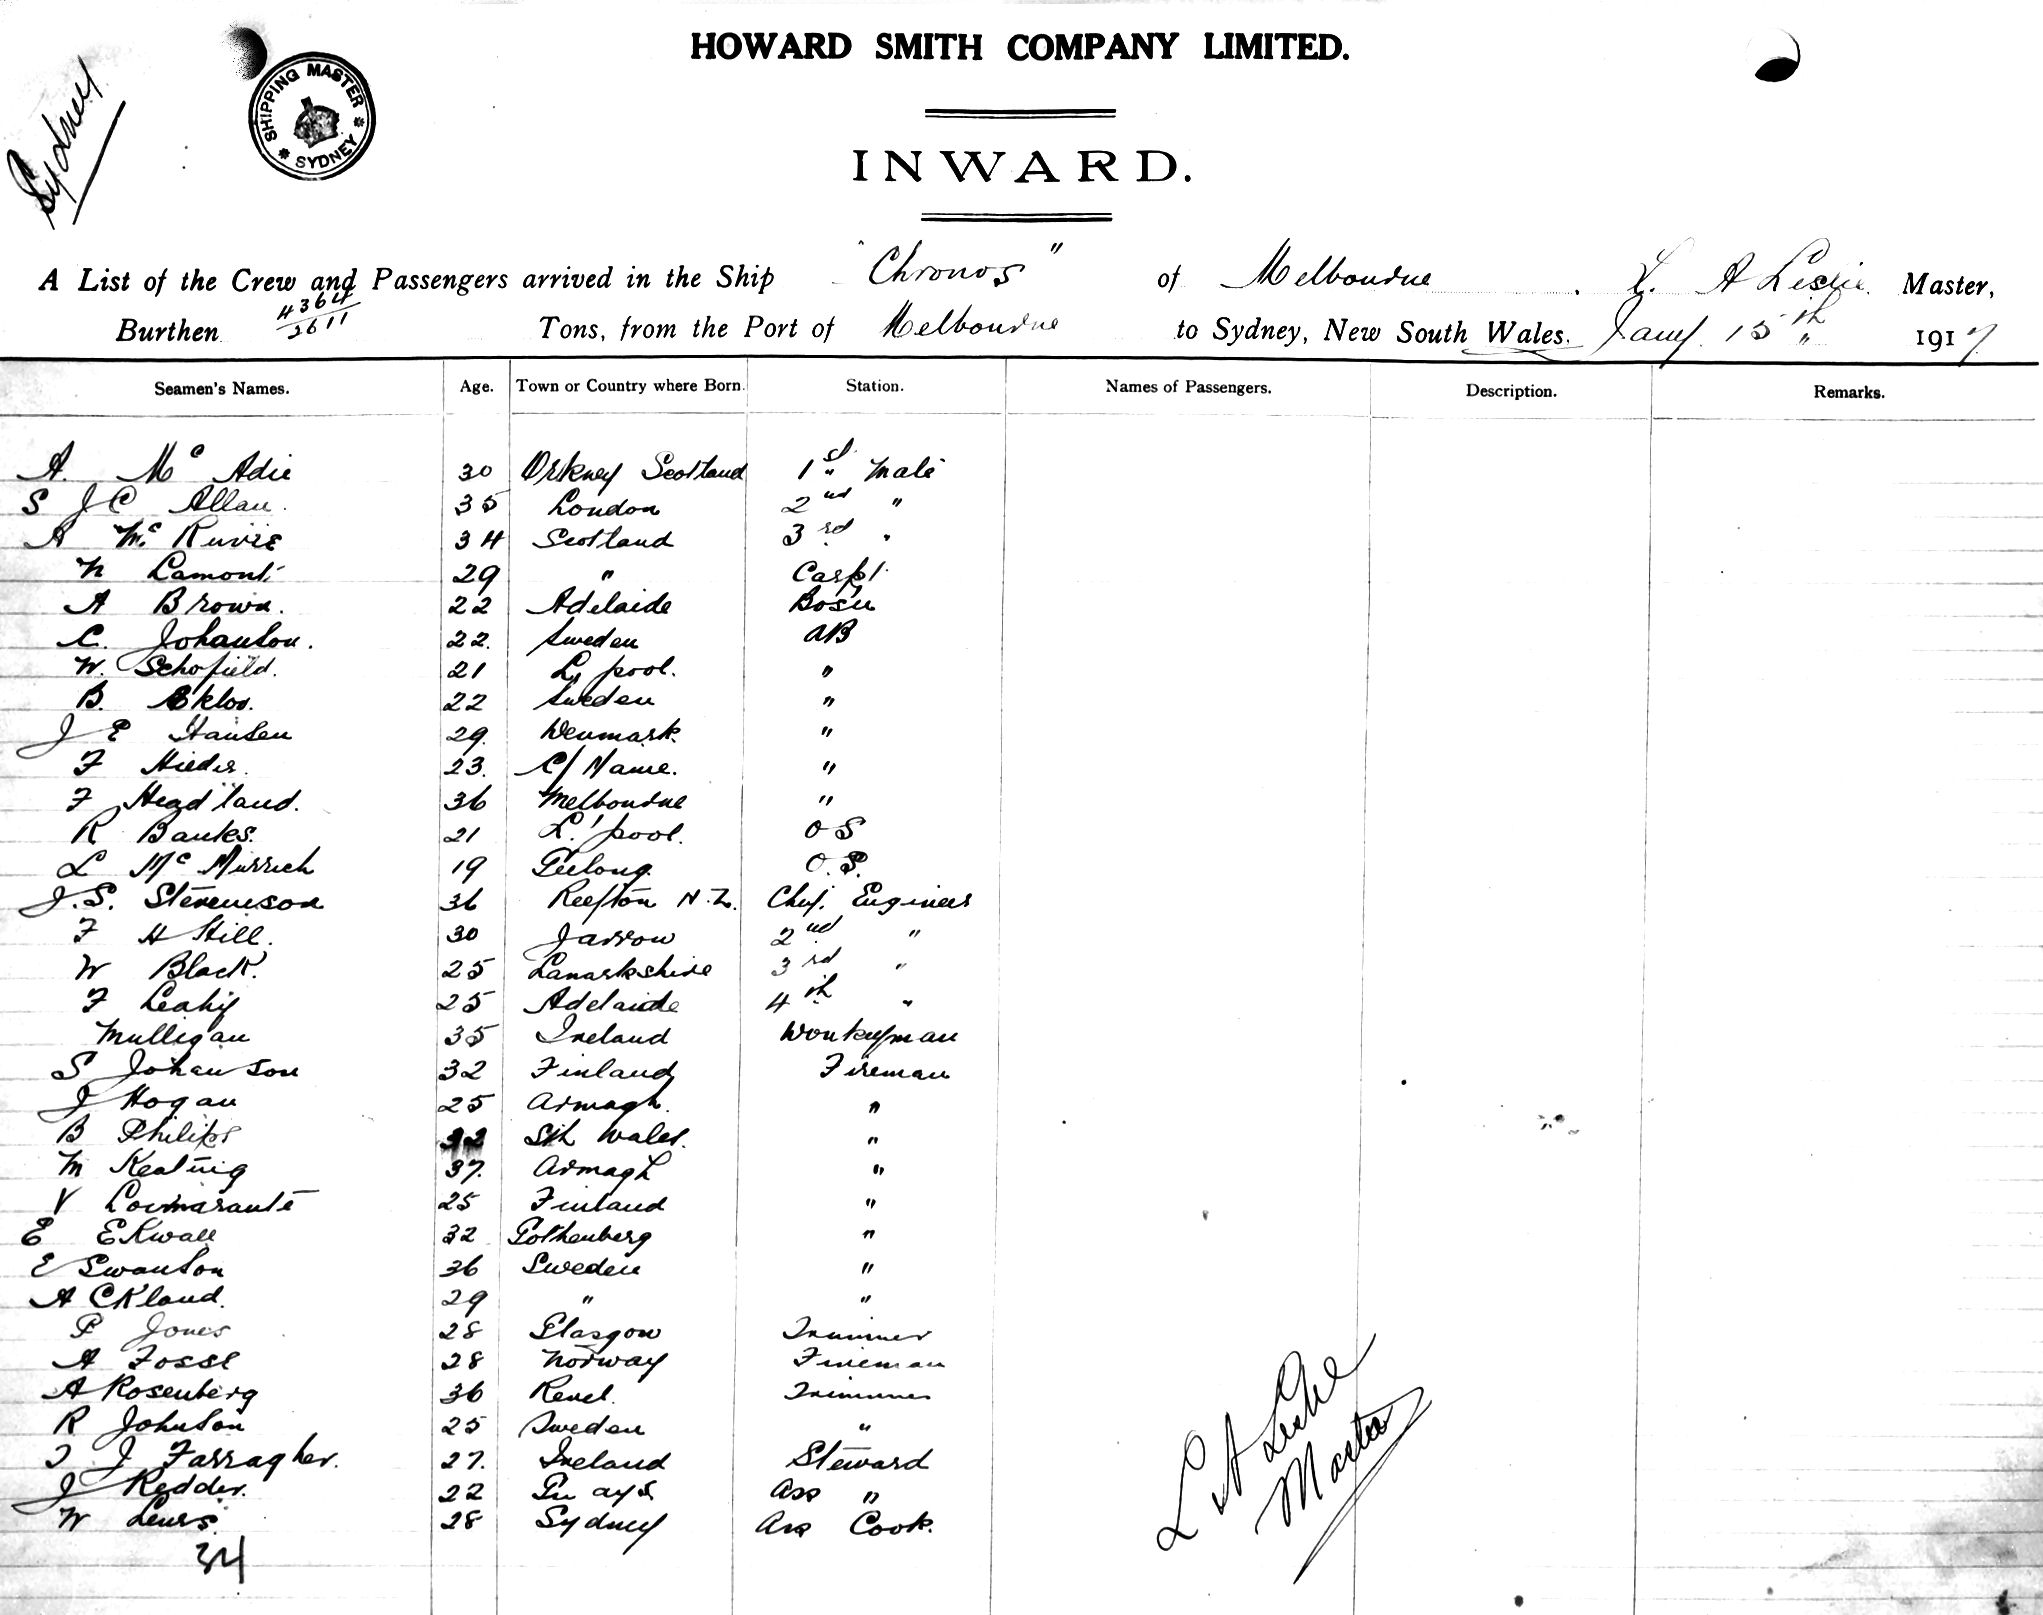 HOWARD SMITH COMPANY LIMITED.
Sydney
SHIPPING MASTER SYDNEY
INWARD.
A List of the Crew and Passengers arrived in the Ship "Chronos" of Melbourne. L. A Leslie Master,
Burthen 4364/2611 Tons, from the Port of Melbourne to Sydney, New South Wales. Jany 15th 1917
Seamen's Names. Age. Town or Country where Born. Station. Names of Passengers. Description. Remarks.
A. Mc Adie 30 Orkney Scotland 1st Mate
S J C Allan. 35 London 2nd "
A Mc Ruvie 34 Scotland 3rd "
N Lamont 29 " Carpt
A Brown. 22 Adelaide Bosn
C. Johanson. 22. Sweden AB
W. Schofield. 21 L'pool. "
B. 22 Sweden "
J E Hansen 29. Denmark "
F Hieder. 23. "
F Headland. 36 Melbourne "
R Banks. 21 L'pool. OS
L Mc Murrich 19 Geelong. O.S.
J.S. Stevenson 36 Reefton N.Z. Chief Engineer
F H Hill. 30 Jarrow 2nd "
W Black. 25 Lanarkshire 3rd "
F Leahy 25 Adelaide 4th "
Mulligan 35 Ireland Donkeyman
S Johanson 32 Finland Fireman
J Hogan 25 Armagh. "
B Philips 32 Sth Wales. "
M Keating 37. Armagh "
V 25 Finland "
E Ekwall 32 Gothenberg "
E Swanson 36 Sweden "
A Ckland. 29 " "
P Jones 28 Glasgow Trimmer
A Fosse 28 Norway Fireman
A Rosenberg 36 Revel. Trimmer
R Johnson 25 Sweden "
J J Farragher. 27. Ireland Steward
J Redder. 22 Ass "
W Lewis. 28 Sydney Ass Cook.
34
L A Leslie
Master